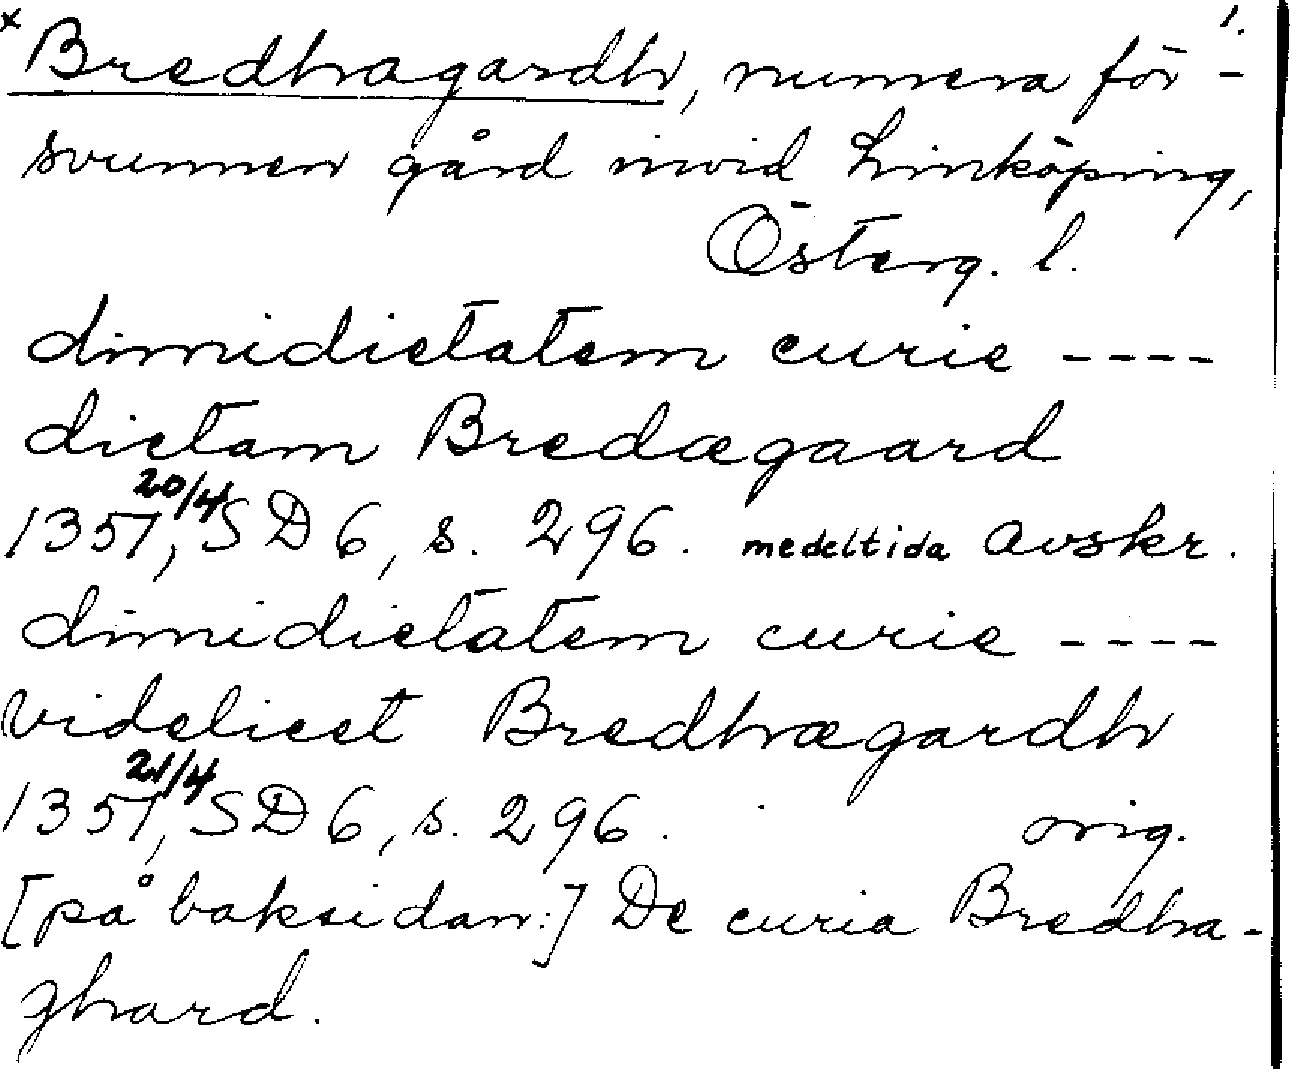 × Bredhagardh, numera för- 1.
svunnen gård invid Linköping,
Österg. l.
dimidietatem curie ----
dictam Bredægaard
1357 20/4, SD 6, s. 296. medeltida avskr.
dimidietatem curie ----
videlicet Bredhægardh
1357 21/4, SD 6, s. 296. orig.
[på baksidan:] De curia Bredha-
ghard.